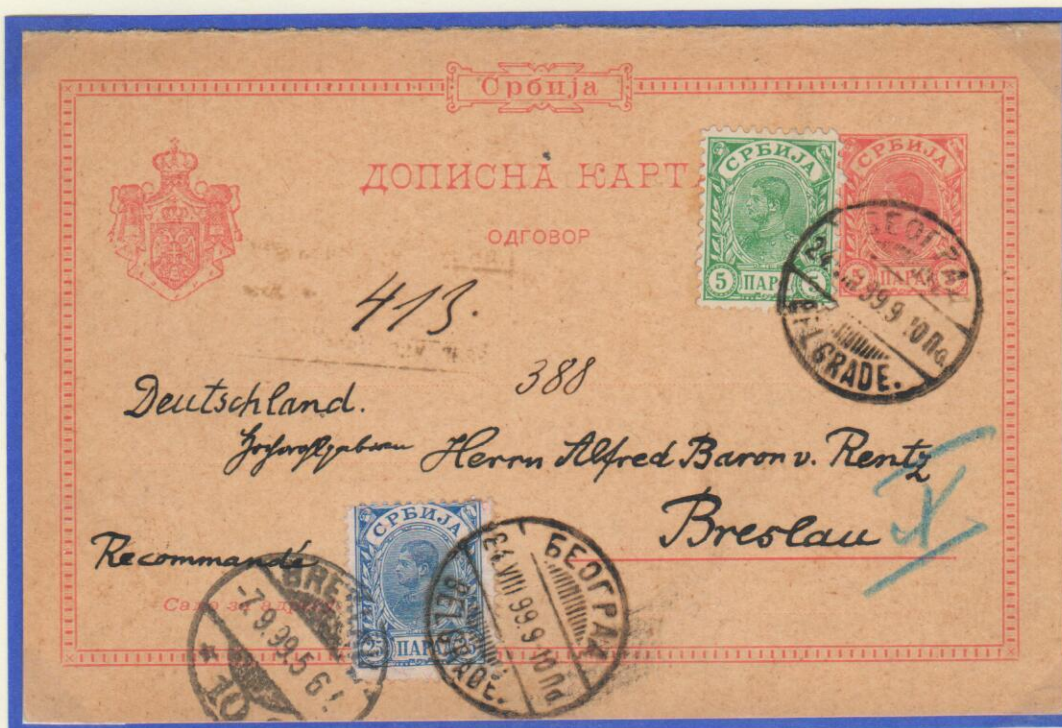 Србија
ДОПИСНА КАРТ
ОДГОВОР
СРБИЈА
5 ПАРА 5
СРБИЈА
ПАРА
БЕОГРАД
99.9 10 По
BELGRADE.
413.
388
Deutschland.
Herrn Alfred Baron v. Rentz
Breslau
Recommandé
Само за адрес
СРБИЈА
25 ПАРА
БЕОГРАД
24 VIII 99.9 10
BELGRADE.
BRE
-7.9.99.5
10